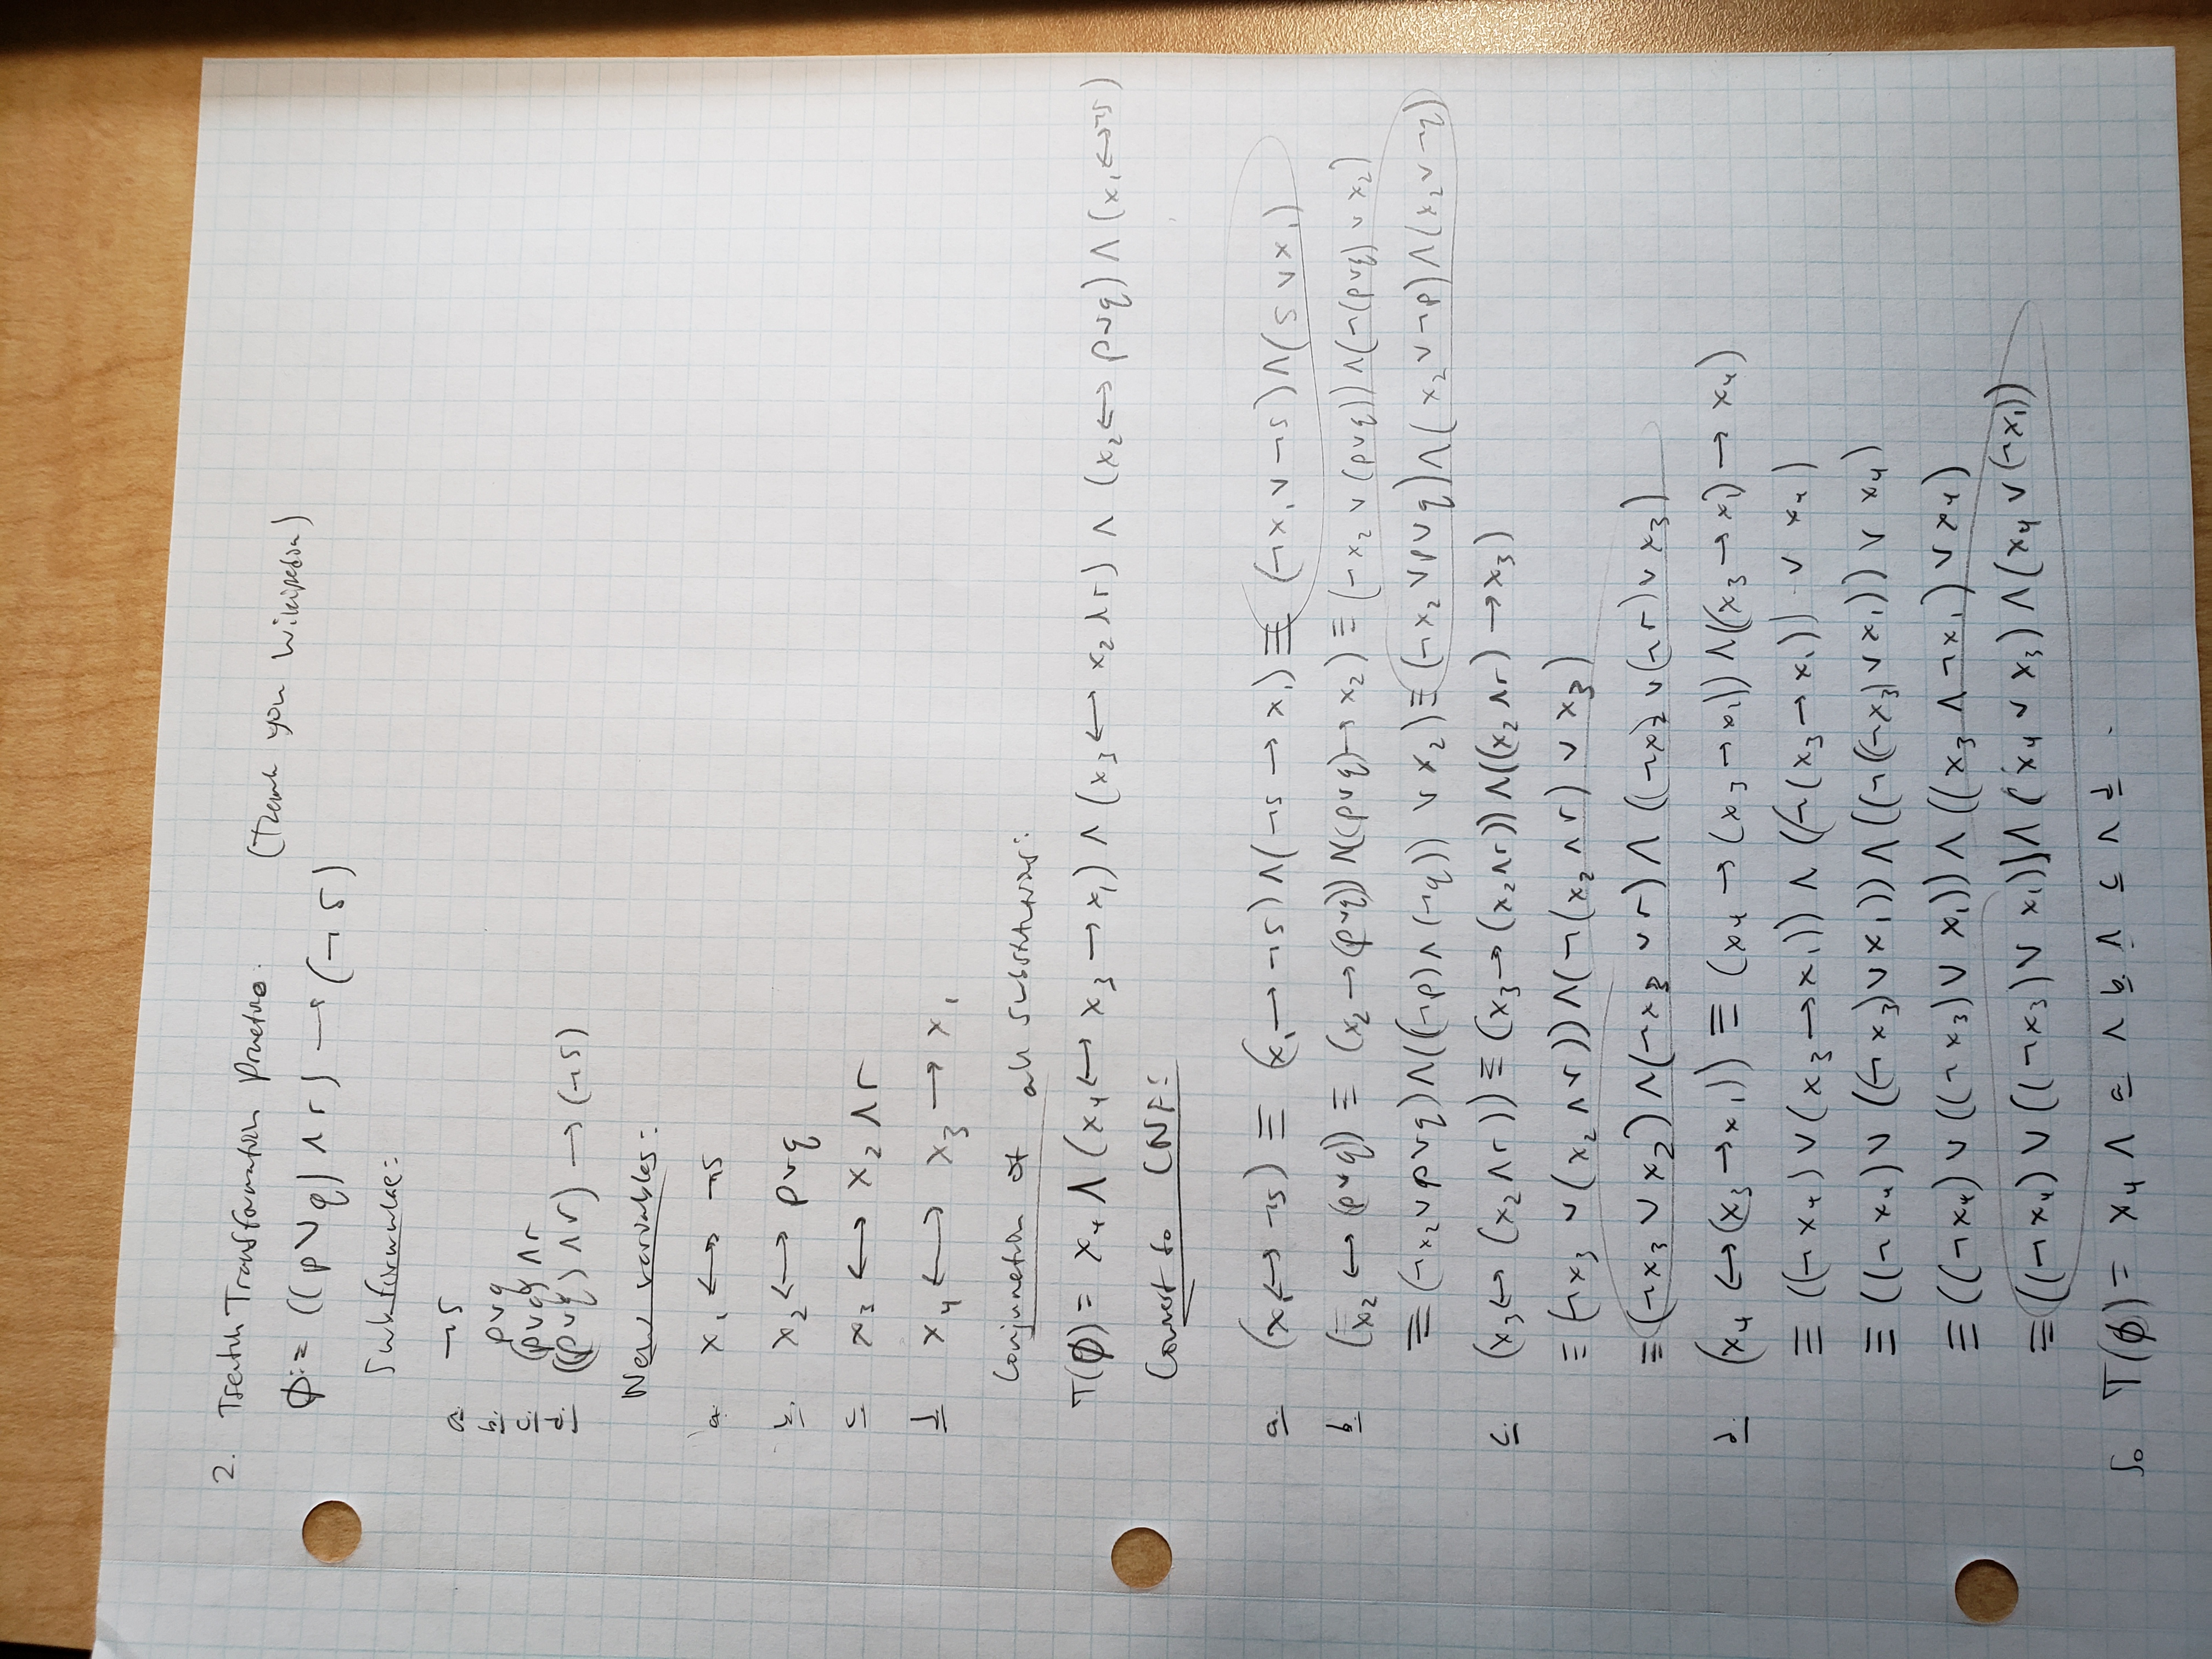 2. Tseitin Transformation Practice. (Thank you Wikipedia)
ϕ := ((p ∨ q) ∧ r) → (¬ s)
Subformulae:
a. ¬s
b. p∨q
c. (p∨q) ∧ r
d. ((p∨q) ∧ r) → (¬s)
New variables:
a x₁ ⟷ ¬s
b. x₂ ⟷ p∨q
c x₃ ⟷ x₂ ∧ r
d x₄ ⟷ x₃ → x₁
Conjunction of all substitutions:
T(ϕ) = x₄ ∧ (x₄ ⟷ x₃ → x₁) ∧ (x₃ ⟷ x₂ ∧ r) ∧ (x₂ ⟷ p∨q) ∧ (x₁ ⟷ ¬s)
Convert to CNF:
a. (x₁ ⟷ ¬s) ≡ (x₁ → ¬s) ∧ (¬s → x₁) ≡ (¬x₁ ∨ ¬s) ∧ (s ∨ x₁)
b. (x₂ ⟷ (p∨q)) ≡ (x₂ → (p∨q)) ∧ ((p∨q) → x₂) ≡ (¬x₂ ∨ (p∨q)) ∧ (¬(p∨q) ∨ x₂)
≡ (¬x₂ ∨ p ∨ q) ∧ ((¬p) ∧ (¬q)) ∨ x₂) ≡ (¬x₂ ∨ p ∨ q) ∧ (x₂ ∨ ¬p) ∧ (x₂ ∨ ¬q)
c. (x₃ ⟷ (x₂ ∧ r)) ≡ (x₃ → (x₂ ∧ r)) ∧ ((x₂ ∧ r) → x₃)
≡ (¬x₃ ∨ (x₂ ∧ r)) ∧ (¬(x₂ ∧ r) ∨ x₃)
≡ (¬x₃ ∨ x₂) ∧ (¬x₃ ∨ r) ∧ ((¬x₂ ∨ (¬r) ∨ x₃)
d. (x₄ ⟷ (x₃ → x₁)) ≡ (x₄ → (x₃ → x₁)) ∧ ((x₃ → x₁) → x₄)
≡ ((¬x₄) ∨ (x₃ → x₁)) ∧ ((¬(x₃ → x₁)) ∨ x₄)
≡ ((¬x₄) ∨ ((¬x₃) ∨ x₁)) ∧ ((¬((¬x₃) ∨ x₁)) ∨ x₄)
≡ ((¬x₄) ∨ ((¬x₃) ∨ x₁)) ∧ ((x₃ ∧ ¬x₁) ∨ x₄)
≡ ((¬x₄) ∨ ((¬x₃) ∨ x₁)) ∧ (x₄ ∨ x₃) ∧ (x₄ ∨ (¬x₁))
So T(ϕ) = x₄ ∧ a ∧ b ∧ c ∧ d .